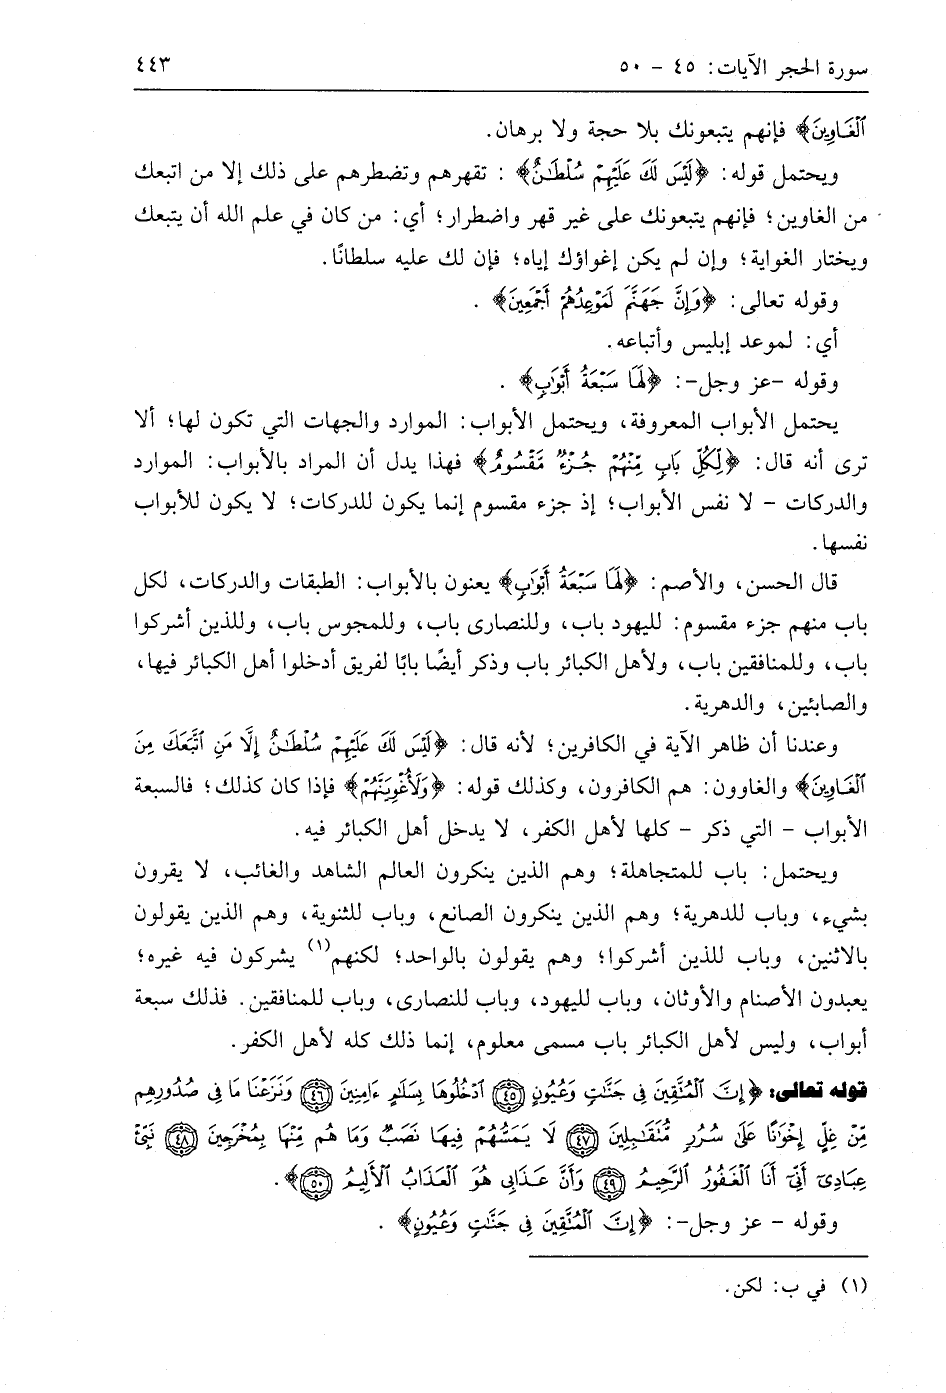 سورة الحجر الآيات: ٤٥ - ٥٠ ٤٤٣
ٱلْغَاوِينَ﴾ فإنهم يتبعونك بلا حجة ولا برهان.
ويحتمل قوله: ﴿لَيْسَ لَكَ عَلَيْهِمْ سُلْطَٰنٌ﴾ : تقهرهم وتضطرهم على ذلك إلا من اتبعك
من الغاوين؛ فإنهم يتبعونك على غير قهر واضطرار؛ أي: من كان في علم الله أن يتبعك
ويختار الغواية؛ وإن لم يكن إغواؤك إياه؛ فإن لك عليه سلطانًا.
وقوله تعالى: ﴿وَإِنَّ جَهَنَّمَ لَمَوْعِدُهُمْ أَجْمَعِينَ﴾ .
أي: لموعد إبليس وأتباعه.
وقوله -عز وجل-: ﴿لَهَا سَبْعَةُ أَبْوَٰبٍ﴾ .
يحتمل الأبواب المعروفة، ويحتمل الأبواب: الموارد والجهات التي تكون لها؛ ألا
ترى أنه قال: ﴿لِكُلِّ بَابٍ مِّنْهُمْ جُزْءٌ مَّقْسُومٌ﴾ فهذا يدل أن المراد بالأبواب: الموارد
والدركات - لا نفس الأبواب؛ إذ جزء مقسوم إنما يكون للدركات؛ لا يكون للأبواب
نفسها.
قال الحسن، والأصم: ﴿لَهَا سَبْعَةُ أَبْوَٰبٍ﴾ يعنون بالأبواب: الطبقات والدركات، لكل
باب منهم جزء مقسوم: لليهود باب، وللنصارى باب، وللمجوس باب، وللذين أشركوا
باب، وللمنافقين باب، ولأهل الكبائر باب وذكر أيضًا بابًا لفريق أدخلوا أهل الكبائر فيها،
والصابئين، والدهرية.
وعندنا أن ظاهر الآية في الكافرين؛ لأنه قال: ﴿لَيْسَ لَكَ عَلَيْهِمْ سُلْطَٰنٌ إِلَّا مَنِ ٱتَّبَعَكَ مِنَ
ٱلْغَاوِينَ﴾ والغاوون: هم الكافرون، وكذلك قوله: ﴿وَلَأُغْوِيَنَّهُمْ﴾ فإذا كان كذلك؛ فالسبعة
الأبواب - التي ذكر - كلها لأهل الكفر، لا يدخل أهل الكبائر فيه.
ويحتمل: باب للمتجاهلة؛ وهم الذين ينكرون العالم الشاهد والغائب، لا يقرون
بشيء، وباب للدهرية؛ وهم الذين ينكرون الصانع، وباب للثنوية، وهم الذين يقولون
بالاثنين، وباب للذين أشركوا؛ وهم يقولون بالواحد؛ لكنهم(١) يشركون فيه غيره؛
يعبدون الأصنام والأوثان، وباب لليهود، وباب للنصارى، وباب للمنافقين. فذلك سبعة
أبواب، وليس لأهل الكبائر باب مسمى معلوم، إنما ذلك كله لأهل الكفر.
قوله تعالى: ﴿إِنَّ ٱلْمُتَّقِينَ فِى جَنَّٰتٍ وَعُيُونٍ ٤٥ ٱدْخُلُوهَا بِسَلَٰمٍ ءَامِنِينَ ٤٦ وَنَزَعْنَا مَا فِى صُدُورِهِم
مِّنْ غِلٍّ إِخْوَٰنًا عَلَىٰ سُرُرٍ مُّتَقَٰبِلِينَ ٤٧ لَا يَمَسُّهُمْ فِيهَا نَصَبٌ وَمَا هُم مِّنْهَا بِمُخْرَجِينَ ٤٨ نَبِّئْ
عِبَادِىٓ أَنِّىٓ أَنَا ٱلْغَفُورُ ٱلرَّحِيمُ ٤٩ وَأَنَّ عَذَابِى هُوَ ٱلْعَذَابُ ٱلْأَلِيمُ ٥٠﴾.
وقوله - عز وجل-: ﴿إِنَّ ٱلْمُتَّقِينَ فِى جَنَّٰتٍ وَعُيُونٍ﴾ .
(١) في ب: لكن.